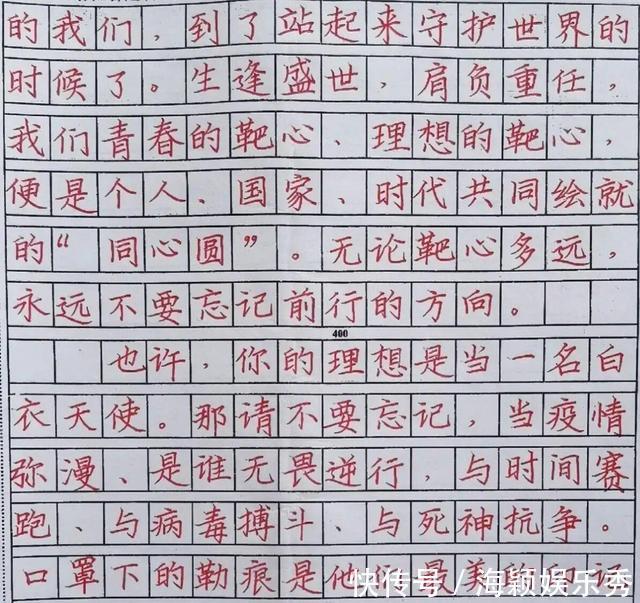 的我们，到了站起来守护世界的
时候了。生逢盛世，肩负重任，
我们青春的靶心、理想的靶心，
便是个人、国家、时代共同绘就
的“同心圆”。无论靶心多远，
永远不要忘记前行的方向。
400
也许，你的理想是当一名白
衣天使。那请不要忘记，当疫情
弥漫、是谁无畏逆行，与时间赛
跑、与病毒搏斗、与死神抗争。
口罩下的勒痕是他们最美的
快传号／海颖娱乐秀